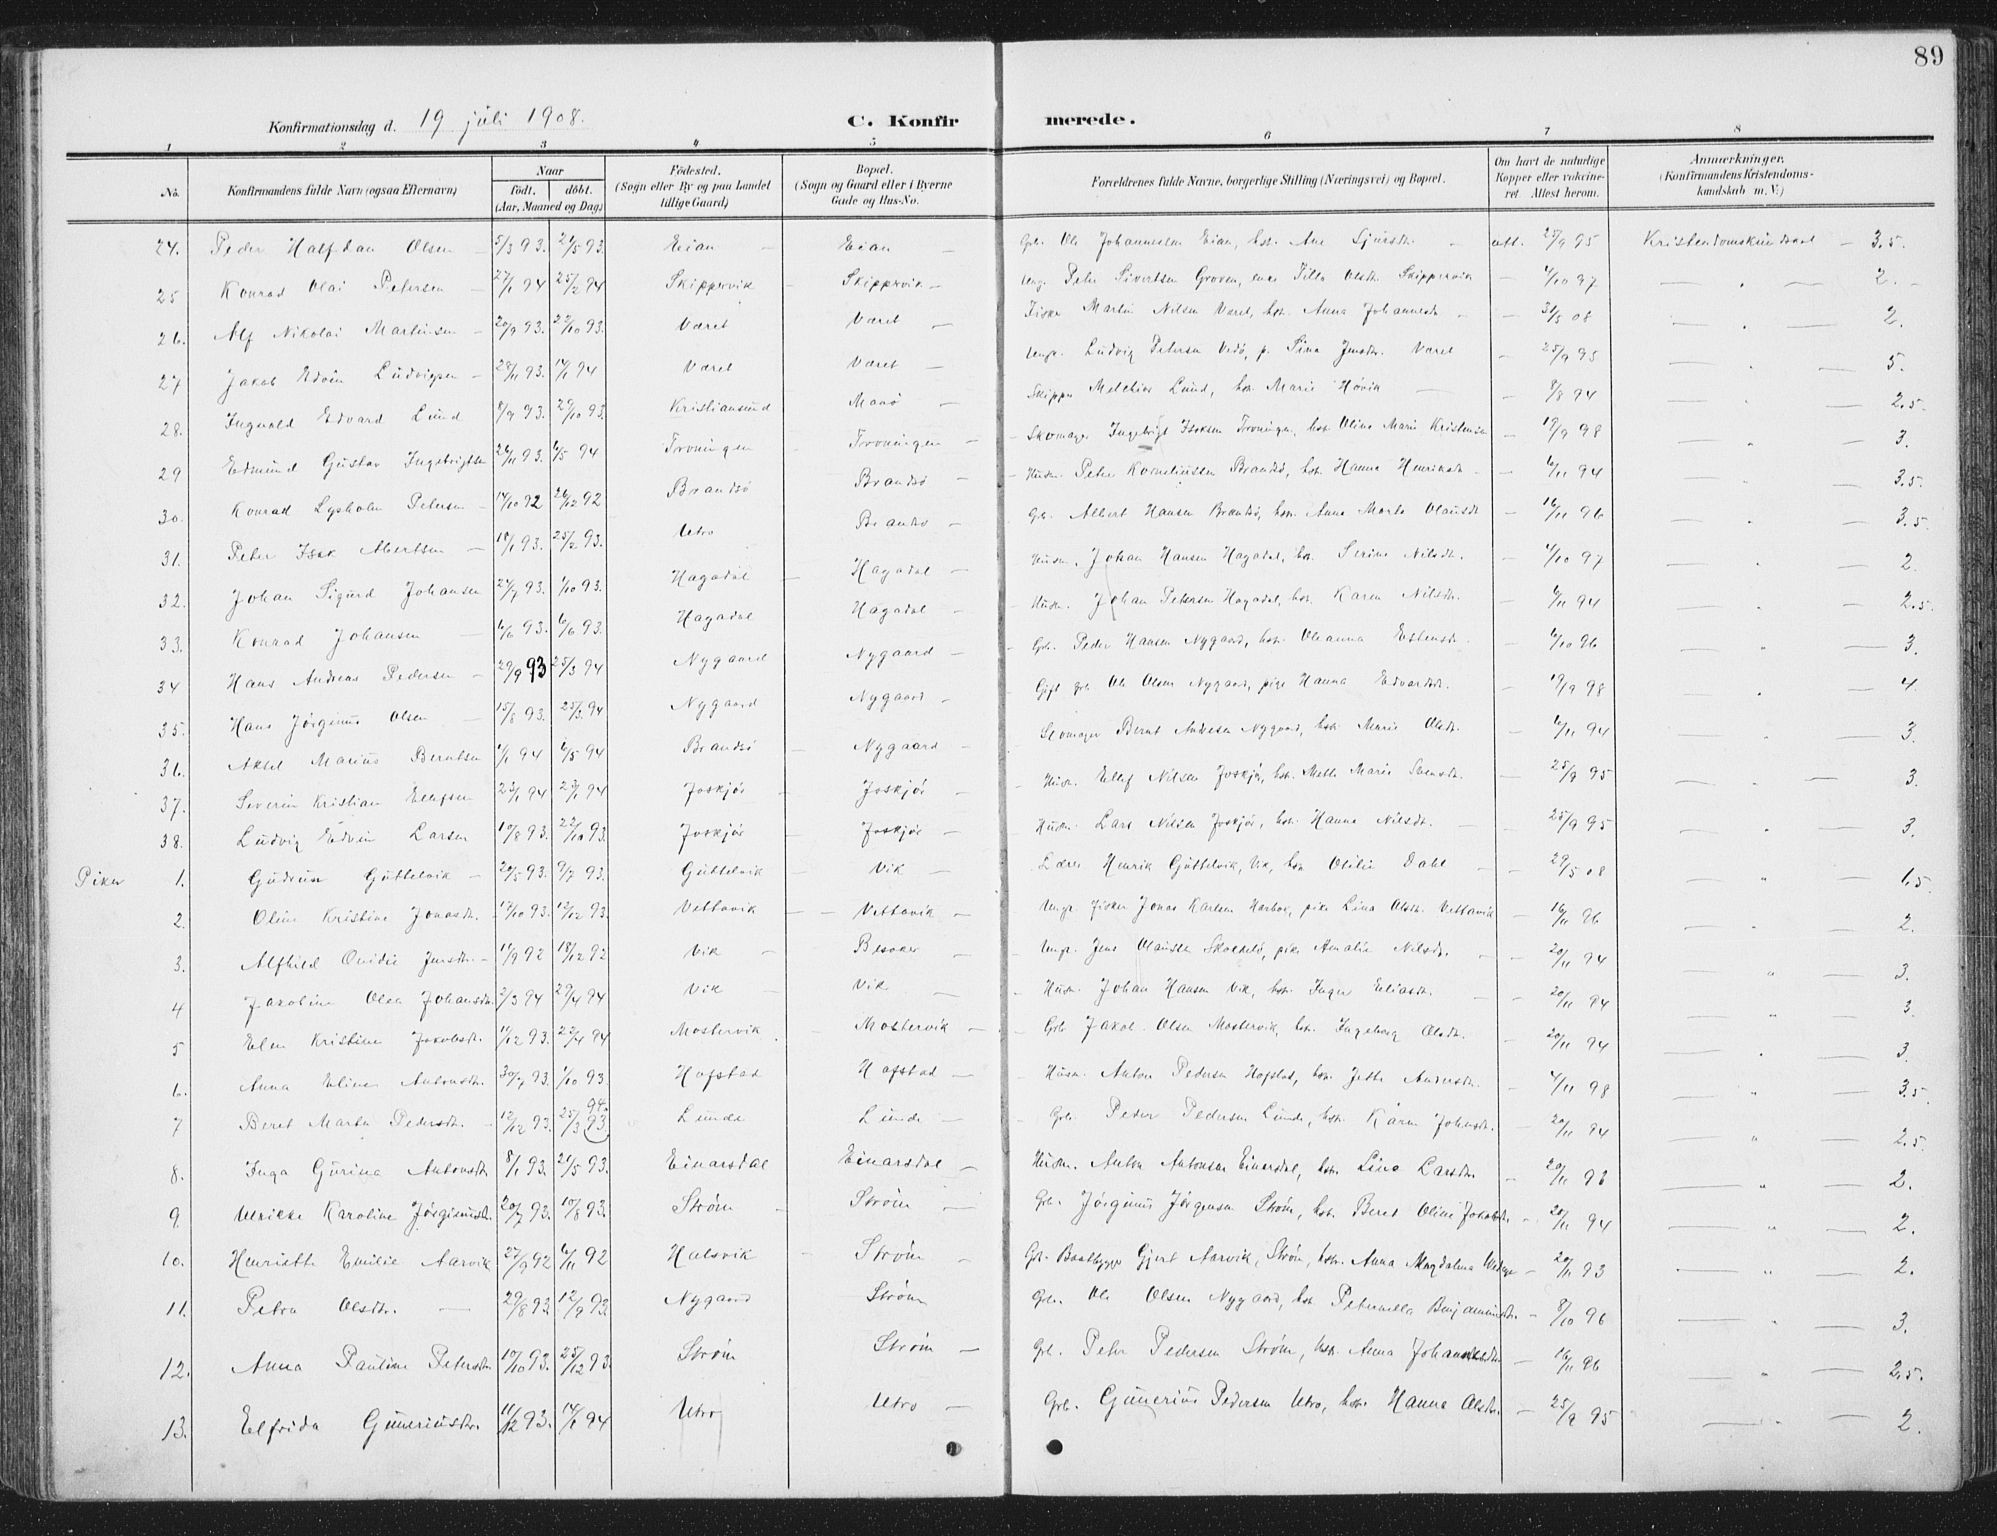 89
Konfirmationsdag d. 19 juli 1908. C. Konfirmerede.
1 2 3 4 5 6 7 8
No. Konfirmandens fulde Navn (ogsaa Efternavn) Naar født. døbt. (Aar, Maaned og Dag) Fødested. (Sogn eller By og paa Landet tillige Gaard) Bopæl. (Sogn og Gaard eller i Byerne Gade og Hus-No. Forældrenes fulde Navne, borgerlige Stilling (Næringsvei) og Bopæl. Om havt de naturlige Kopper eller vaccineret. Attest herom. Anmærkninger. (Konfirmandens Kristendomskundskab m. V.)
24. Peder Halfdan Olsen – 5/3 93. 21/5 93. Eian – Eian – Grb. Ole Johannesen Eian, hst. Ane Sjursdr. – att. 25/9 95 Kristendomskundskab – 3.5.
25 Konrad Olai Petersen – 27/1 94 25/2 94 Skippervik – Skippervik – Ung. Peter Sivertsen Groven, enke Pille Olsdtr. Skippervik – 4/10 97 – " – 2.
26. Alf Nikolai Martinsen – 20/9 93. 29/10 93. Været Været – Fisker Martin Nilsen Været, hst. Anna Johannesdr. – – 31/5 08 – " – 2.
27 Jakob Edvin Ludvigsen – 28/11 93. 14/1 94 Været Været – Ungk. Ludvig Petersen Vedø, p. Sina Jensdtr. Været – 25/9 95 – " – 5.
28. Ingvald Edvard Lund 8/9 93. 29/10 93. Kristiansund Manø – Skipper Melchior Lund, hst. Marie Høvik – 8/8 94 – " – 2.5.
29 Edmund Gustav Ingebrigtsen 26/11 93. 6/5 94 Trøningen – Trøningen – – Skomager Ingebrigt Isaksen Trøningen, hst. Oline Marie Kristensdr – 19/9 98 – " – 3.
30. Konrad Lysholm Petersen – 14/10 92 26/12 92 Brandsø Brandsø – – Husm. Peter Korneliussen Brandsø, hst. Hanna Henriksdr – – 6/11 94 – " – 3.5.
31. Peter Isak Albertsen – 18/1 93. 25/2 93. Utro Brandsø – Grb. Albert Hansen Brandsø, hst. Anne Marta Olausdr – 16/11 96 – " – 3.5.
32. Johan Sigurd Johansen 24/7 93. 1/10 93. Hagadal – Hagadal – – Husm. Johan Hansen Hagadal, hst. Serine Nilsdr. – 4/10 97 – " – 2.
33. Konrad Johansen – 6/6 93. 6/6 93. Hagadal Hagadal – – Husm. Johan Petersen Hagadal, hst. Karen Nilsdr. – 6/11 94 – " – 2.5.
34 Hans Andreas Pedersen – 29/9 93 25/3 94 Nygaard – Nygaard – – Grb. Peder Hansen Nygaard, hst. Oleanna Estensdr. – 6/10 96 – " – 3.
35. Hans Jørginus Olsen – 15/8 93. 25/3 94 Nygaard Nygaard – – Gift grb. Ole Olsen Nygaard, pige Hanna Edvardsdr. – 19/9 98 – " – 4.
36. Aksel Marius Berntsen 1/1 94 6/5 94 Brandsø – Nygaard – – Skomager Bernt Andresen Nygaard, hst. Marie Olsdr. – 6/11 94 – " – 3.
37. Severin Kristian Ellefsen 23/1 94 29/1 94 Joskjør – Joskjør – Husm. Ellef Nilsen Joskjør, hst. Mette Marie Svensdr. – 25/9 95 – " – 3.
38. Ludvig Edvin Larsen 10/8 93. 22/10 93. Joskjør Joskjør – Husm. Lars Nilsen Joskjør, hst. Hanna Nilsdr. – – 25/9 95 – " – 3.
Piker 1. Gudrun Güttelvik – 24/5 93. 9/7 93. Güttelvik – Vik – Lærer Henrik Güttelvik, Vik, hst. Otilie Dahl – – 29/5 08 – " – 1.5.
2. Oline Kristine Jonasdr. – 17/10 93. 17/12 93. Vettavik – – Vettavik – Ungk. fisker Jonas Karlsen Harbak, pike Lina Olsdr. Vettavik – 16/11 96 – " – 2.
3. Alfhild Ovidie Jensdr. – 11/9 92 18/12 92 Vik – Besaker – Ungk. Jens Olausen Skottelø, pike Amalie Nilsdr. – – 20/11 94 – " – 3.
4 Jakobine Olea Johansdr. 2/3 94 29/4 94 Vik – Vik – – Husm. Johan Hansen Vik, hst. Inger Eliasdr. – – 20/11 94 – " – 3.
5 Elen Kristine Jakobsdr. 11/12 93. 22/4 94 Mostervik – Mostervik – – Grb. Jakob Olsen Mostervik, hst. Ingeborg Olsdr. – 20/11 94 – " – 3.
6. Anna Eline Antonsdr. 30/7 93. 1/10 93. Hofstad Hofstad – – Husm. Anton Pedersen Hofstad, hst. Jette Andersdr. – 4/11 98 – " – 3.5.
7 Beret Marta Pedersdr. – 12/12 93. 25/3 (93.) 94. Lunde – Lunde – – Grb. Peder Pedersen Lunde, hst. Karen Johnsdr. – 20/11 94 – " – 2.5.
8. Inga Gurina Antonsdr 8/1 93. 21/5 93. Einarsdal Einarsdal – Husm. Anton Antonsen Einarsdal, hst. Lina Larsdr. – 20/11 93 – " – 2.
9 Ulrikke Karoline Jørginusdr. 20/7 93. 10/8 93. Strøm – Strøm – Grb. Jørginus Jørgensen Strøm, hst. Beret Oline Jakobsdr. – 20/11 94 – " – 2.
10. Henriette Emilie Aarvik 27/9 92 6/11 92 Halsvik – Strøm – Grb. Baatbygger Gjert Aarvik, Strøm, hst. Anna Magdalena – 20/11 93 – " – 2.
11. Petra Olsdtr. – 29/8 93 12/9 93. Nygaard Strøm Grb. Ole Olsen Nygaard, hst. Peternella Benjaminsdr. – 8/10 96 – " – 3.
12. Anna Pauline Petersdr 10/10 93. 25/12 93. Strøm Strøm – Grb. Peter Pedersen Strøm, hst. Anna Johannesdr. – 16/11 96 – " – 2.5.
13. Elfrida Guneriusdr. 11/12 93. 14/1 94 Utro Utro – Grb. Gunerius Pedersen Utro, hst. Hanna Olsdr. – 25/9 95 – " – 2.